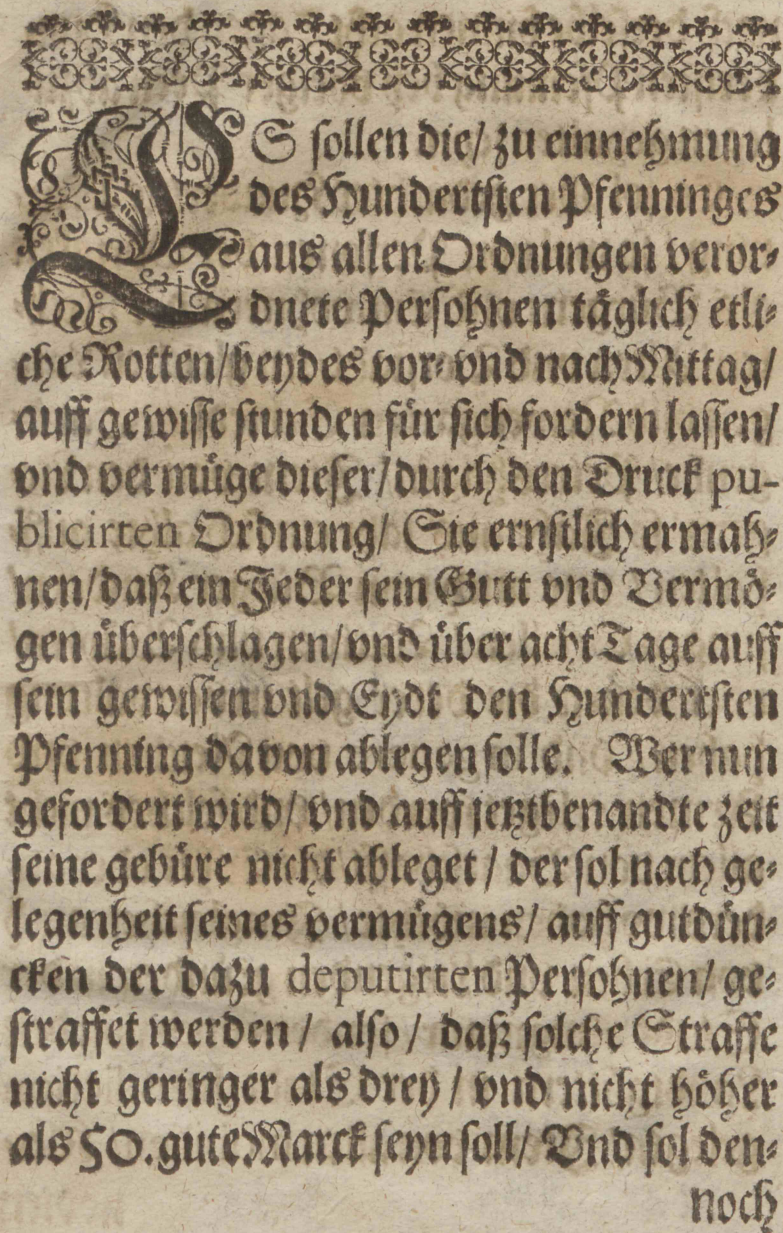 ES sollen die/ zu einnehmung
des Hundertsten Pfenninges
aus allen Ordnungen veror-
dnete Persohnen täglich etli-
che Rotten/ beydes vor- vnd nach Mittag/
auff gewisse stunden für sich fordern lassen/
vnd vermüge dieser/ durch den Druck pu-
blicirten Ordnung/ Sie ernstlich ermah-
nen/ daß ein Jeder sein Gutt vnd Vermö-
gen überschlagen/ vnd über acht Tage auff
sein gewissen vnd Eydt den Hundertsten
Pfenning davon ablegen solle. Wer nun
gefordert wird/ vnd auff jetztbenandte zeit
seine gebüre nicht ableget/ der sol nach ge-
legenheit seines vermügens/ auff gutdün-
cken der dazu deputirten Persohnen/ ge-
straffet werden/ also/ daß solche Straffe
nicht geringer als drey/ vnd nicht höher
als 50. gute Marck seyn soll/ Vnd sol den-
noch